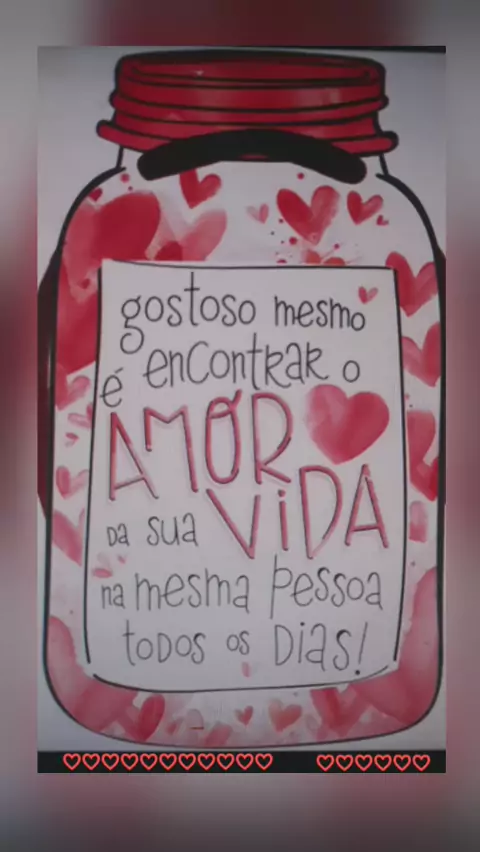 gostoso mesmo
é encontrar o
AMOR
DA sua VIDA
na mesma pessoa
todos os Dias!